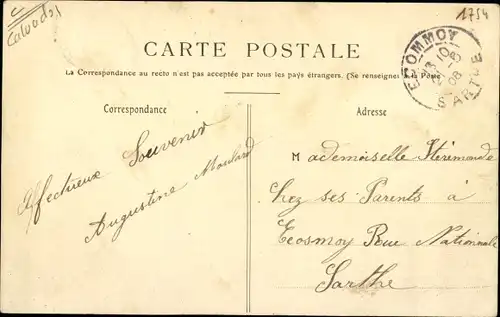 C
Calvados
1754
CARTE POSTALE
La Correspondance au recto n'est pas acceptée par tous les pays étrangers. (Se renseigner à la Poste
ECOMMOY
SARTHE
Correspondance
Adresse
Affectueux Souvenir
Augustine Moulard
Mademoiselle
Chez ses Parents à
Ecosmoy Rue Nationale
Sarthe